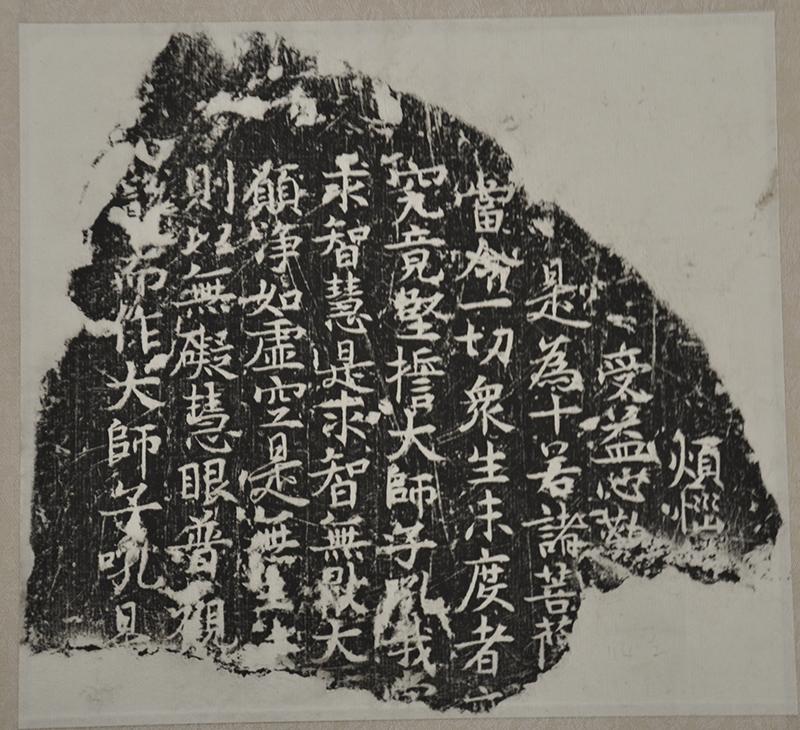 煩惱
受益心勤
是為十若諸菩薩
當令一切衆生未度者
究竟堅誓大師子吼我當
求智慧是求智無猒大
願淨如虛空是無生
則以無礙慧眼普觀
而作大師子吼見